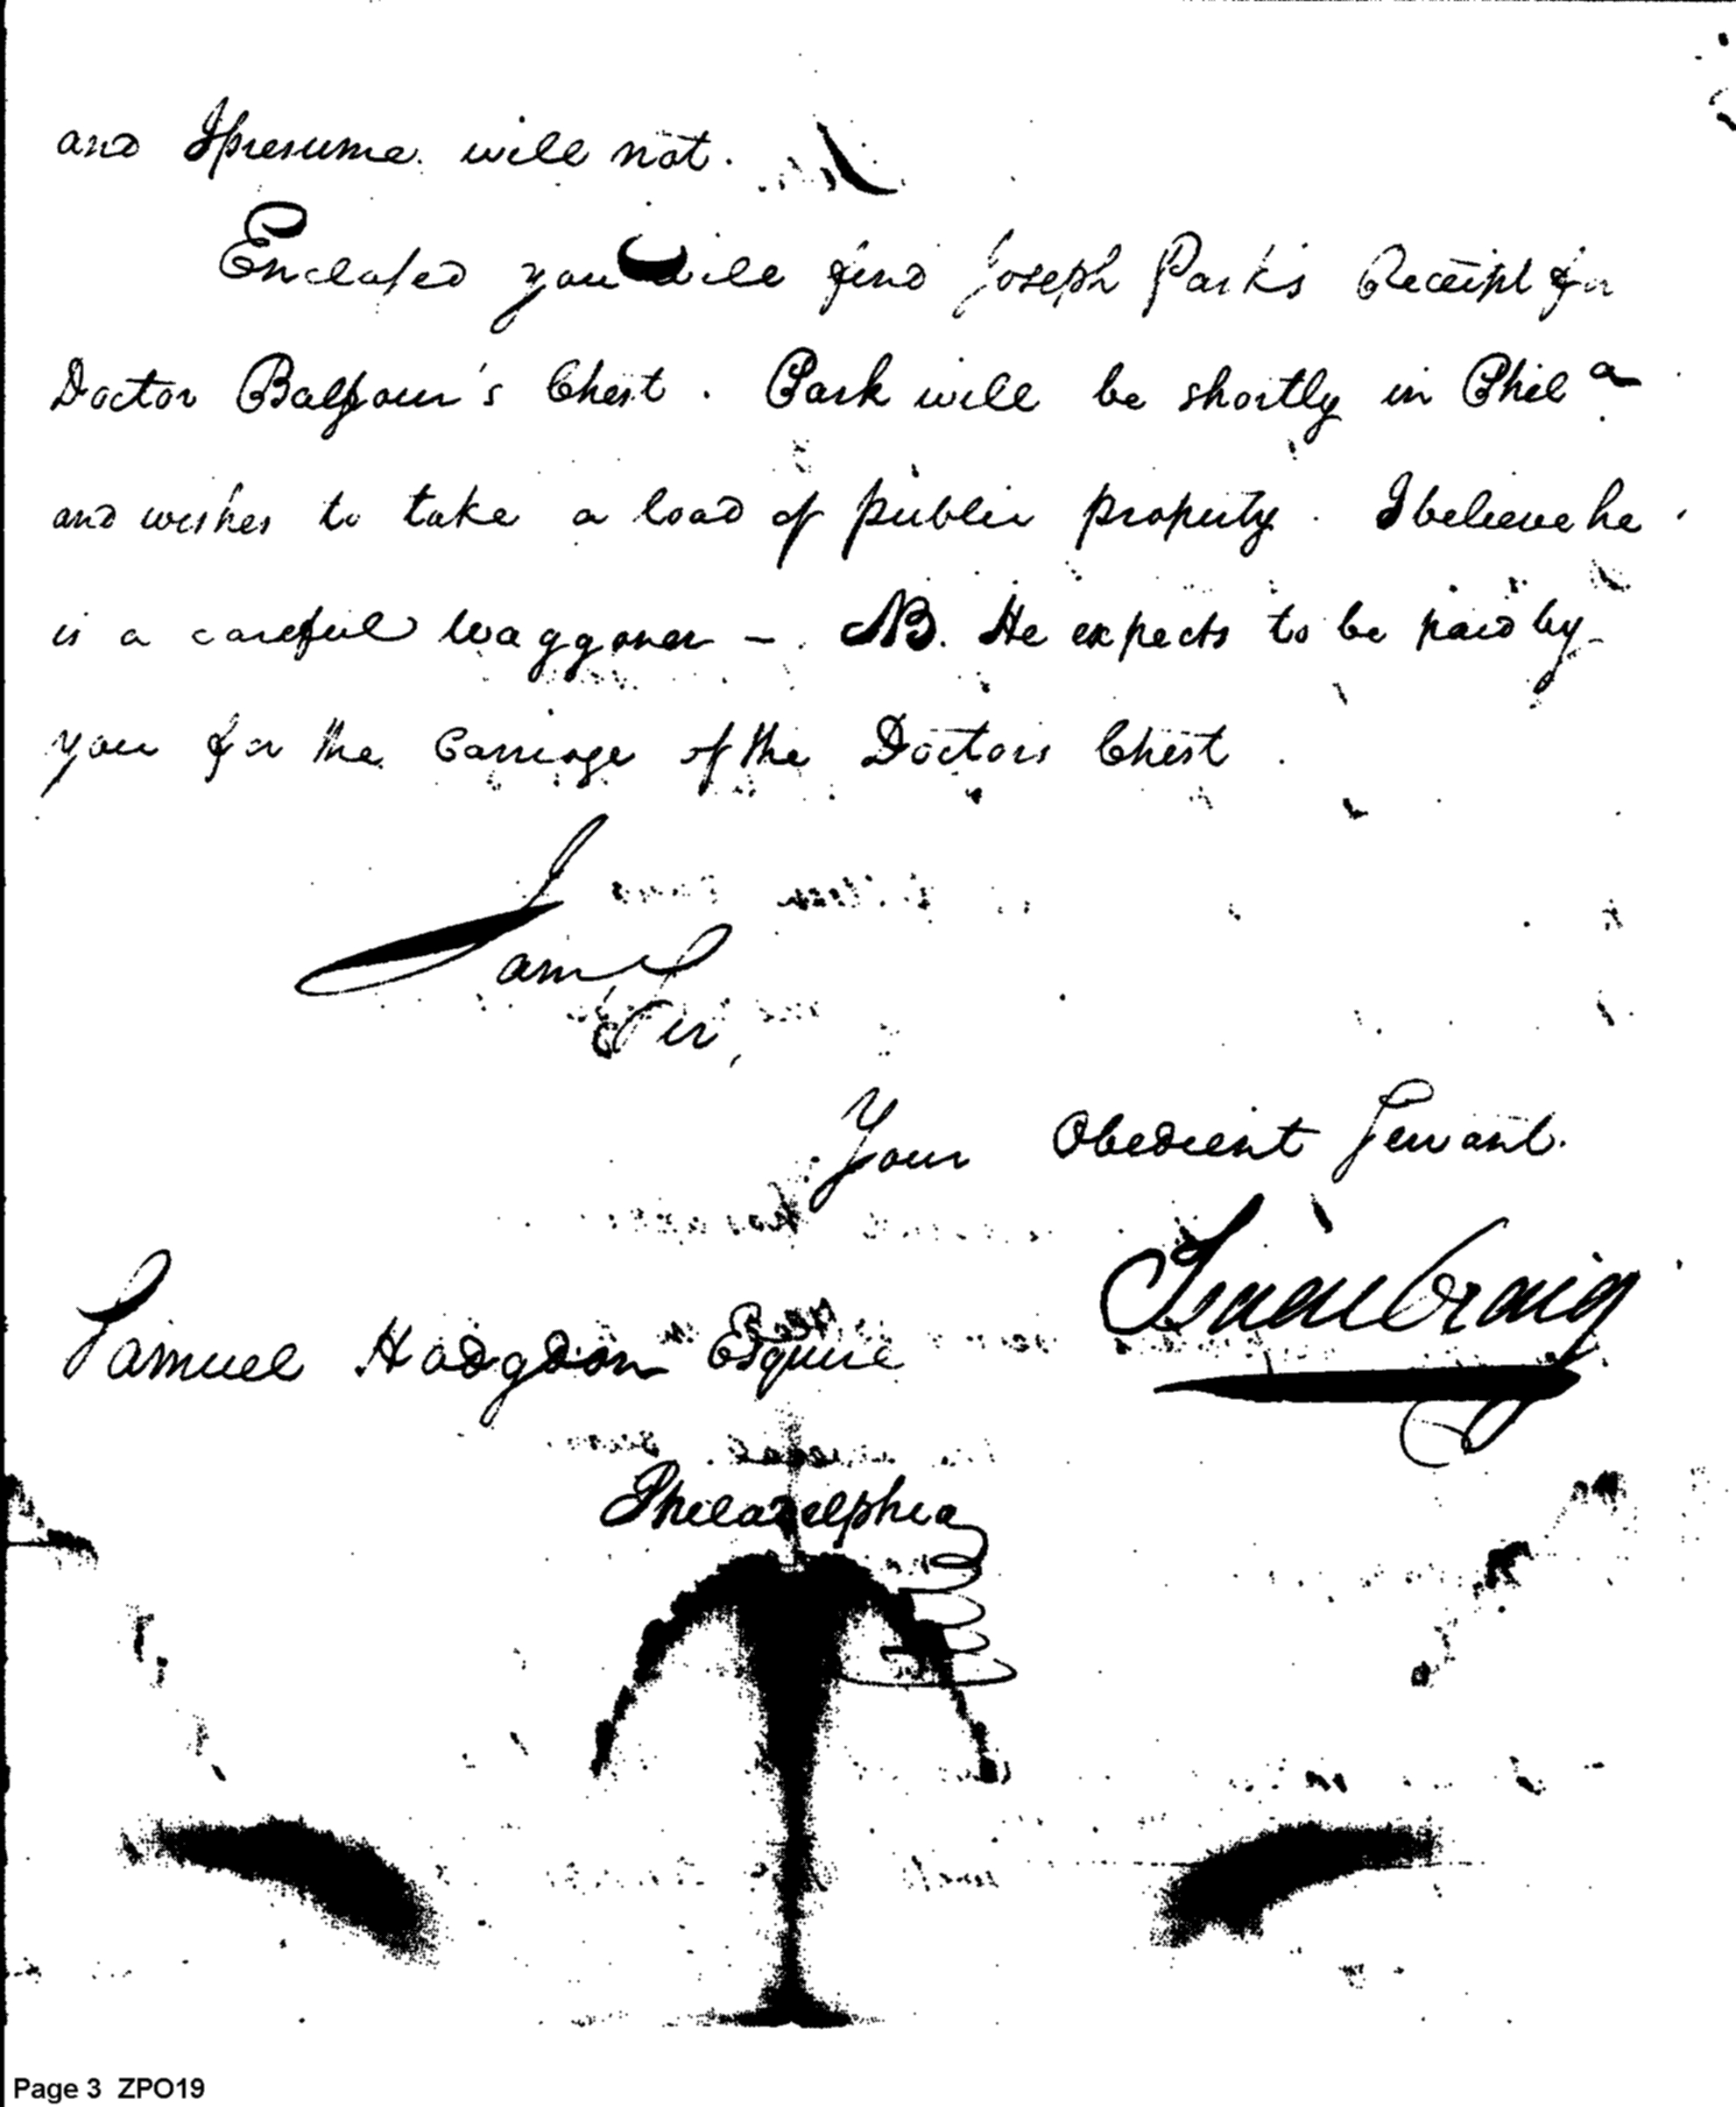 and I presume will not.
Enclosed you will find Joseph Park's Receipt for
Doctor Balfour's Chest. Park will be shortly in Phila
and wishes to take a load of public property. I believe he
is a careful waggoner – NB. He expects to be paid by
you for the Carriage of the Doctors Chest.
I am
Sir,
Your Obedient Servant.
Isaac Craig
Samuel Hodgdon Esquire
Philadelphia
Page 3 ZPO19